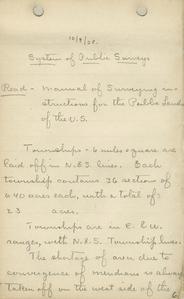 10/9/08.
System of Public Surveys
Read - Manual of Surveying in-
structions for the Public Lands
of the U.S.
Townships - 6 miles square are
laid off in N.&S. lines. Each
township contains 36 section of
640 acres each, with a total of
23 acres.
Townships are in E. & W.
ranges, with N.& S. Township lines.
The shortage of area due to
convergence of meridians is always
taken off on the west side of the